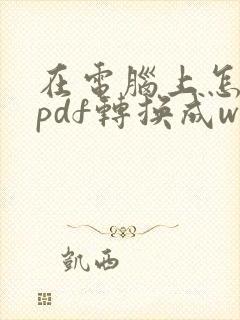 在電腦上怎
pdf轉換成w
凱西